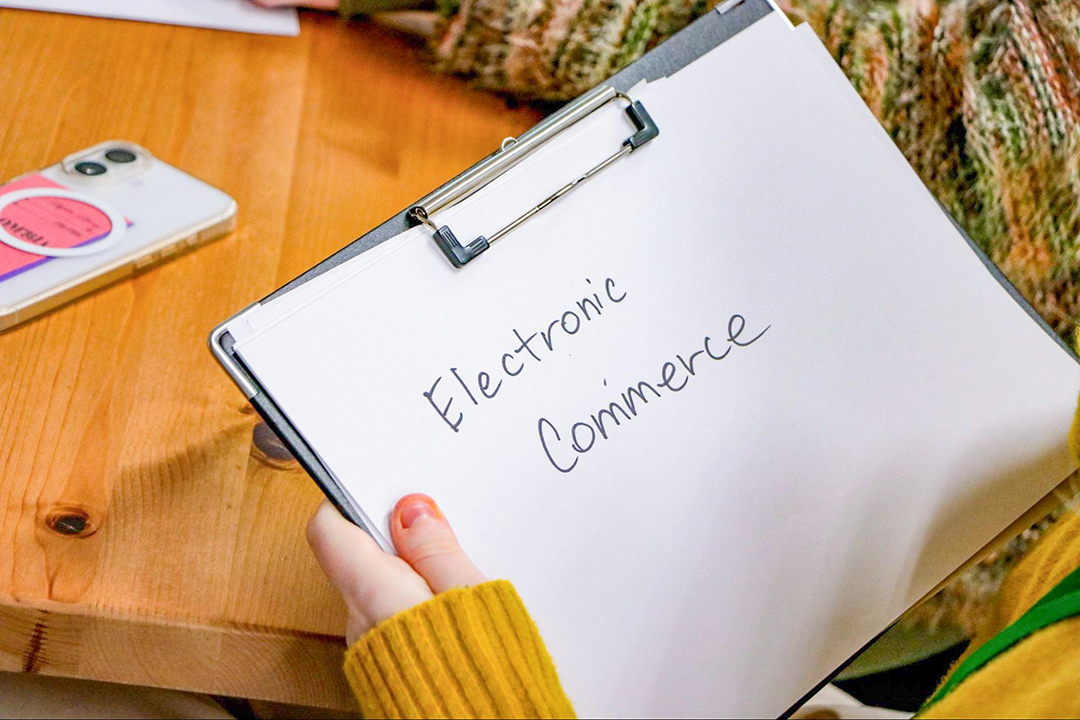 Electronic
Commerce